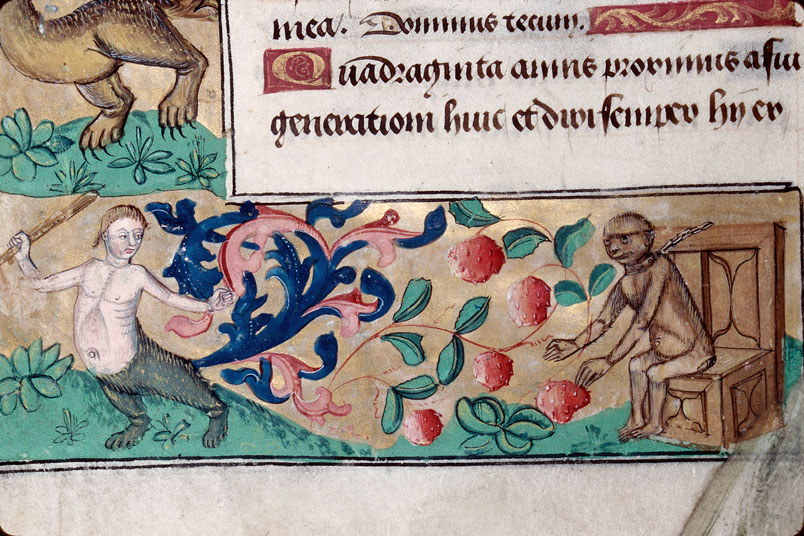 mea. Dominus tecum.
Quadraginta annis proximus a fui
generationi huic et dixi semper hij er